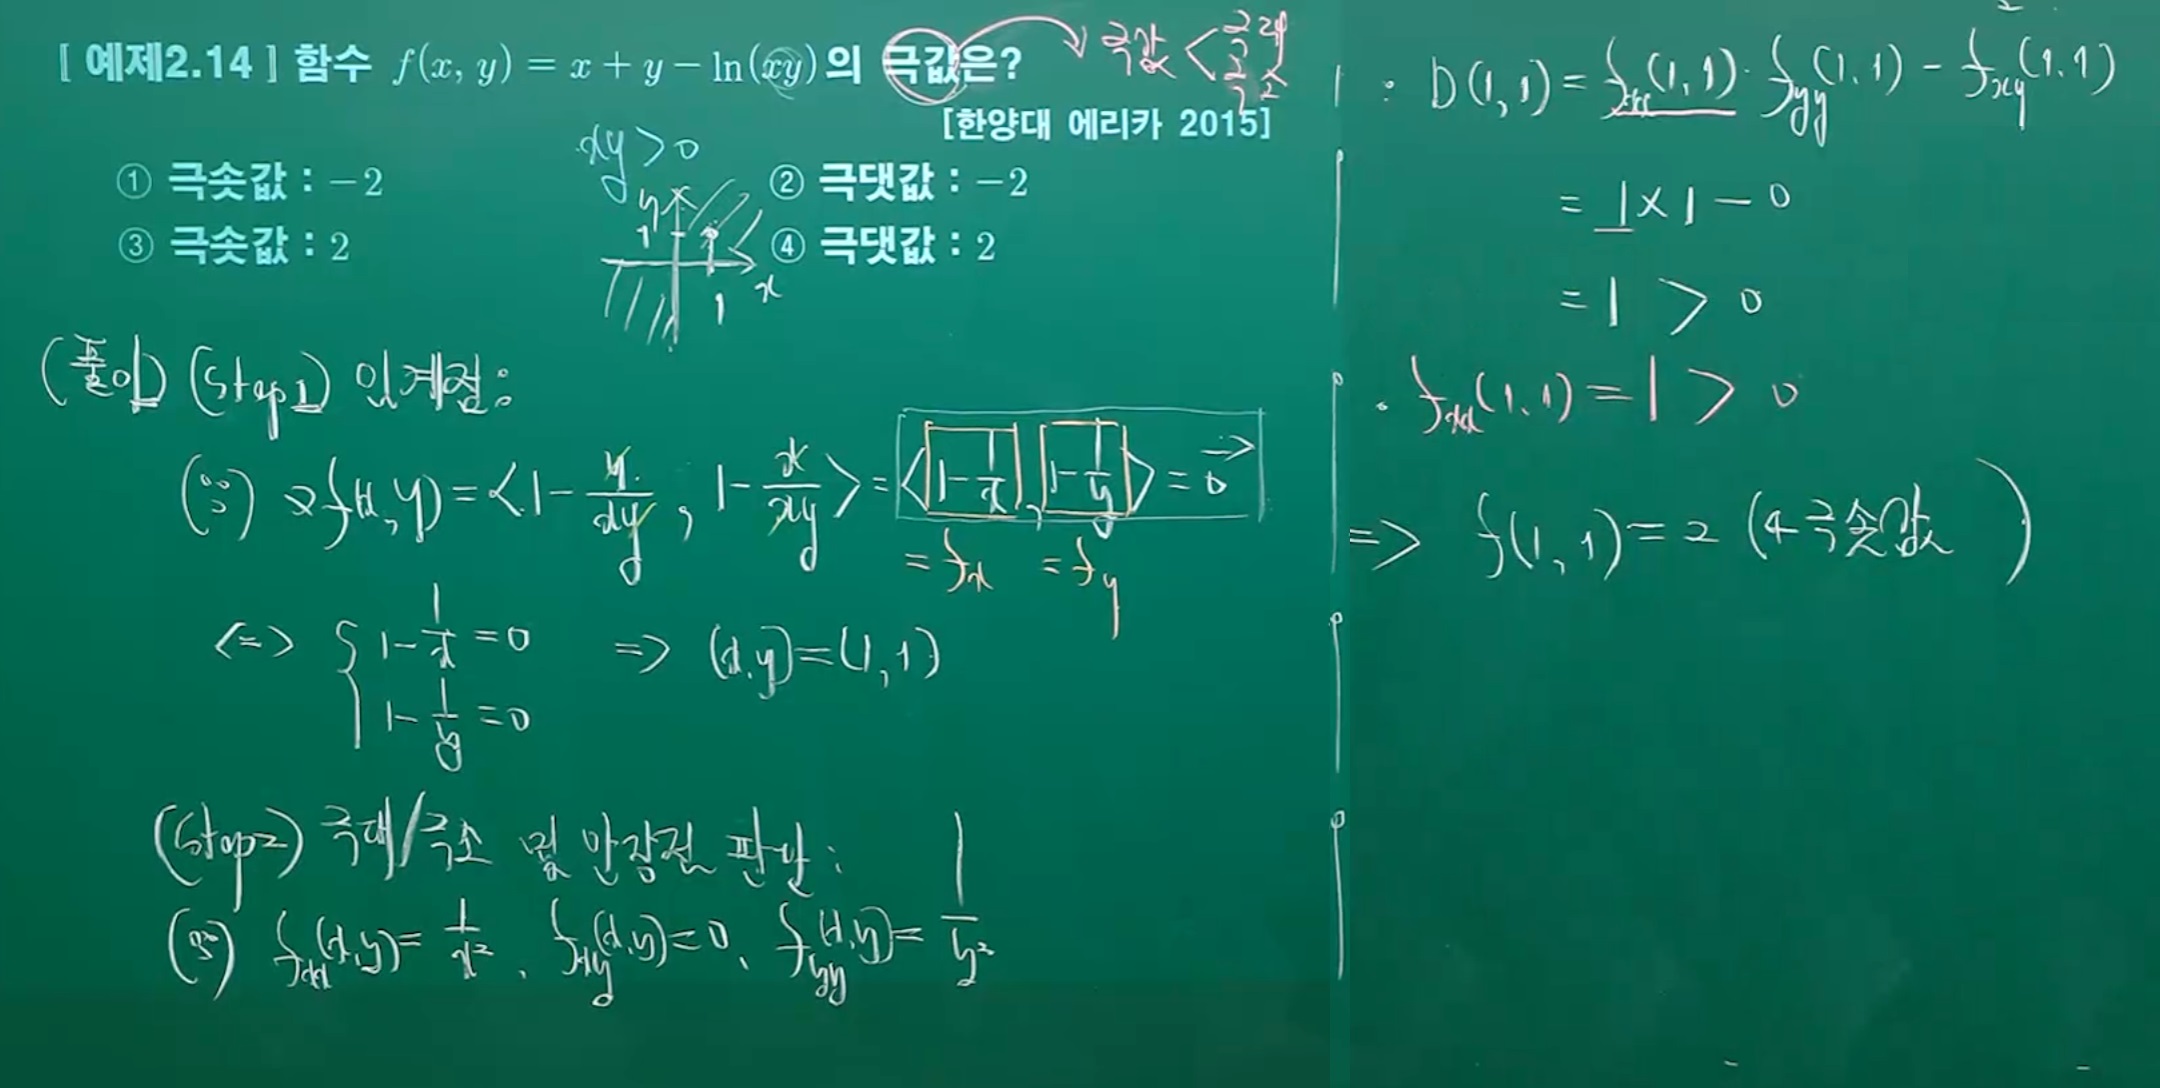 [ 예제2.14 ] 함수 f(x, y) = x + y − ln(xy)의 극값은?
극값 < 극대 극소
[한양대 에리카 2015]
xy > 0
① 극솟값 : −2
② 극댓값 : −2
③ 극솟값 : 2
④ 극댓값 : 2
y
1
1
x
(풀이) (step1) 임계점:
(∵) ∇f(x,y) = <1 − y/xy, 1 − x/xy> = <1 − 1/x, 1 − 1/y> = 0→
= fx = fy
<=> { 1 − 1/x = 0 => (x,y) = (1,1)
1 − 1/y = 0
(step2) 극대/극소 및 안장점 판단:
(∵) fxx(x,y) = 1/x², fxy(x,y) = 0, fyy(x,y) = 1/y²
: D(1,1) = fxx(1,1) · fyy(1,1) − fxy(1,1)²
= 1 × 1 − 0
= 1 > 0
· fxx(1,1) = 1 > 0
=> f(1,1) = 2 (← 극솟값)